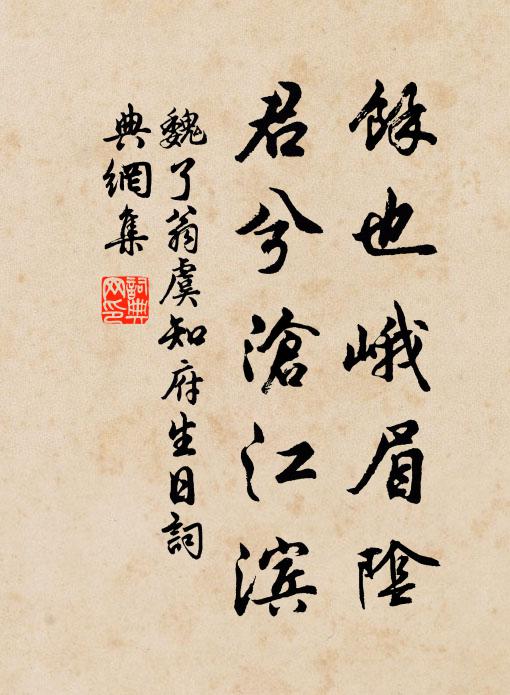 餘也峨眉陰
君兮滄江滨
魏了翁虞知府生日詞
典網集
詞典网印